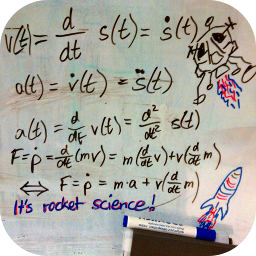 v(t) = d/dt s(t) = ṡ(t)
a(t) = v̇(t) = s̈(t)
a(t) = d/dt v(t) = d²/dt² s(t)
F = ṗ = d/dt (mv) = m(d/dt v) + v(d/dt m)
⇔ F = ṗ = m·a + v(d/dt m)
It's rocket science!